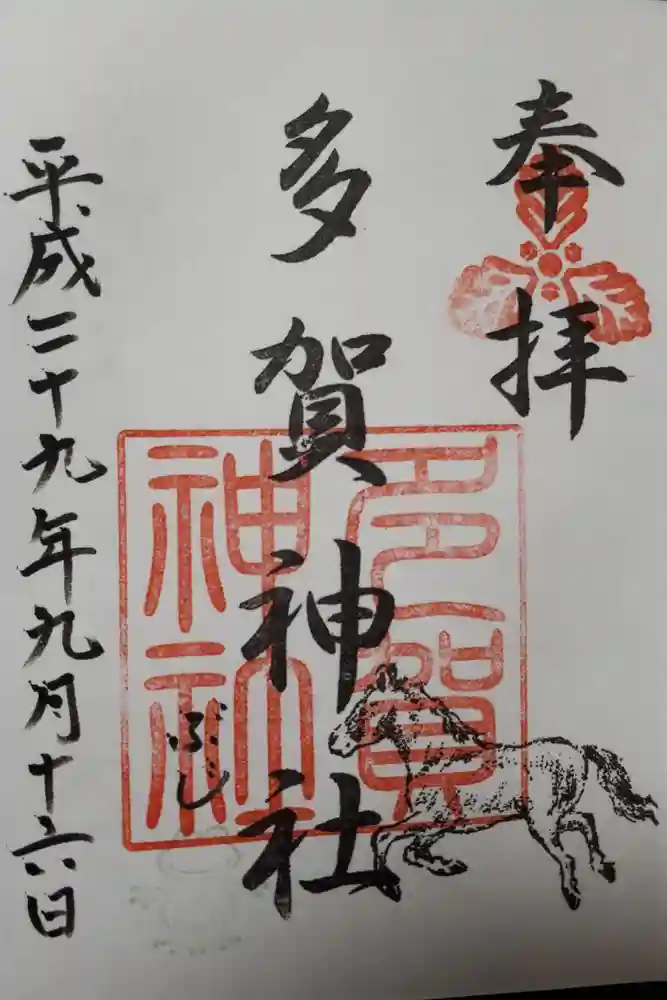 奉拝
多賀神社
多賀
神社
ぶじ
平成二十九年九月十六日